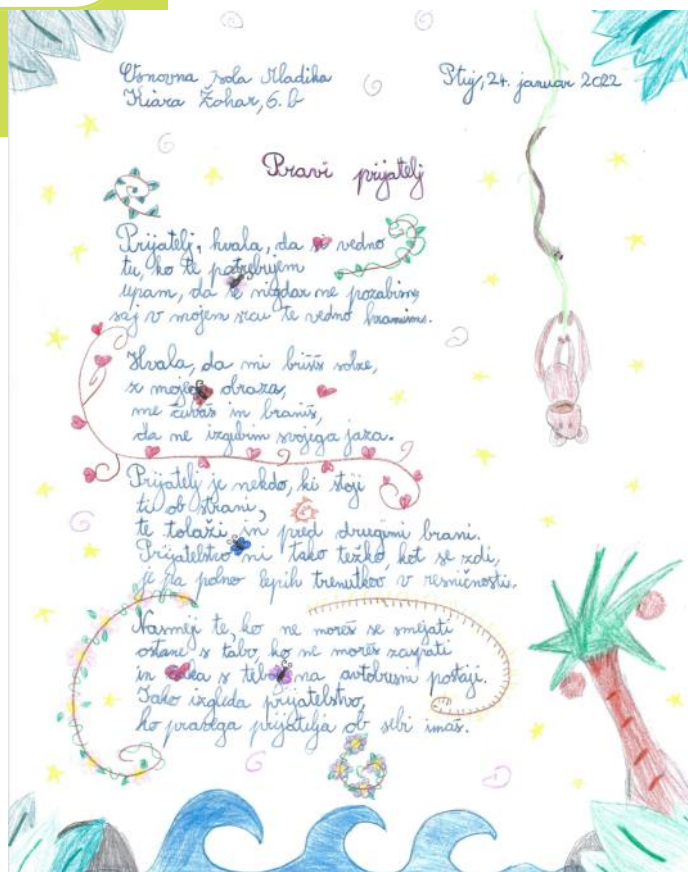 Osnovna šola Mladika
Kiara Žohar, 6. b
Ptuj, 24. januar 2022
Pravi prijatelj
Prijatelj, hvala, da si vedno
tu, ko te potrebujem
upam, da te nigdar ne pozabim,
saj v mojem srcu te vedno hranim.
Hvala, da mi brišiš solze,
z mojega obraza,
me čuvaš in braniš,
da ne izgubim svojega jaza.
Prijatelj je nekdo, ki stoji
ti ob strani,
te tolaži in pred drugimi brani.
Prijatelstvo ni tako težko, kot se zdi,
je pa polno lepih trenutkov v resničnosti.
Nasmeji te, ko ne moreš se smejati
ostane s tabo, ko ne moreš zaspati
in čaka s teboj na avtobusni postaji.
Tako izgleda prijatelstvo,
ko pravega prijatelja ob sebi imaš.